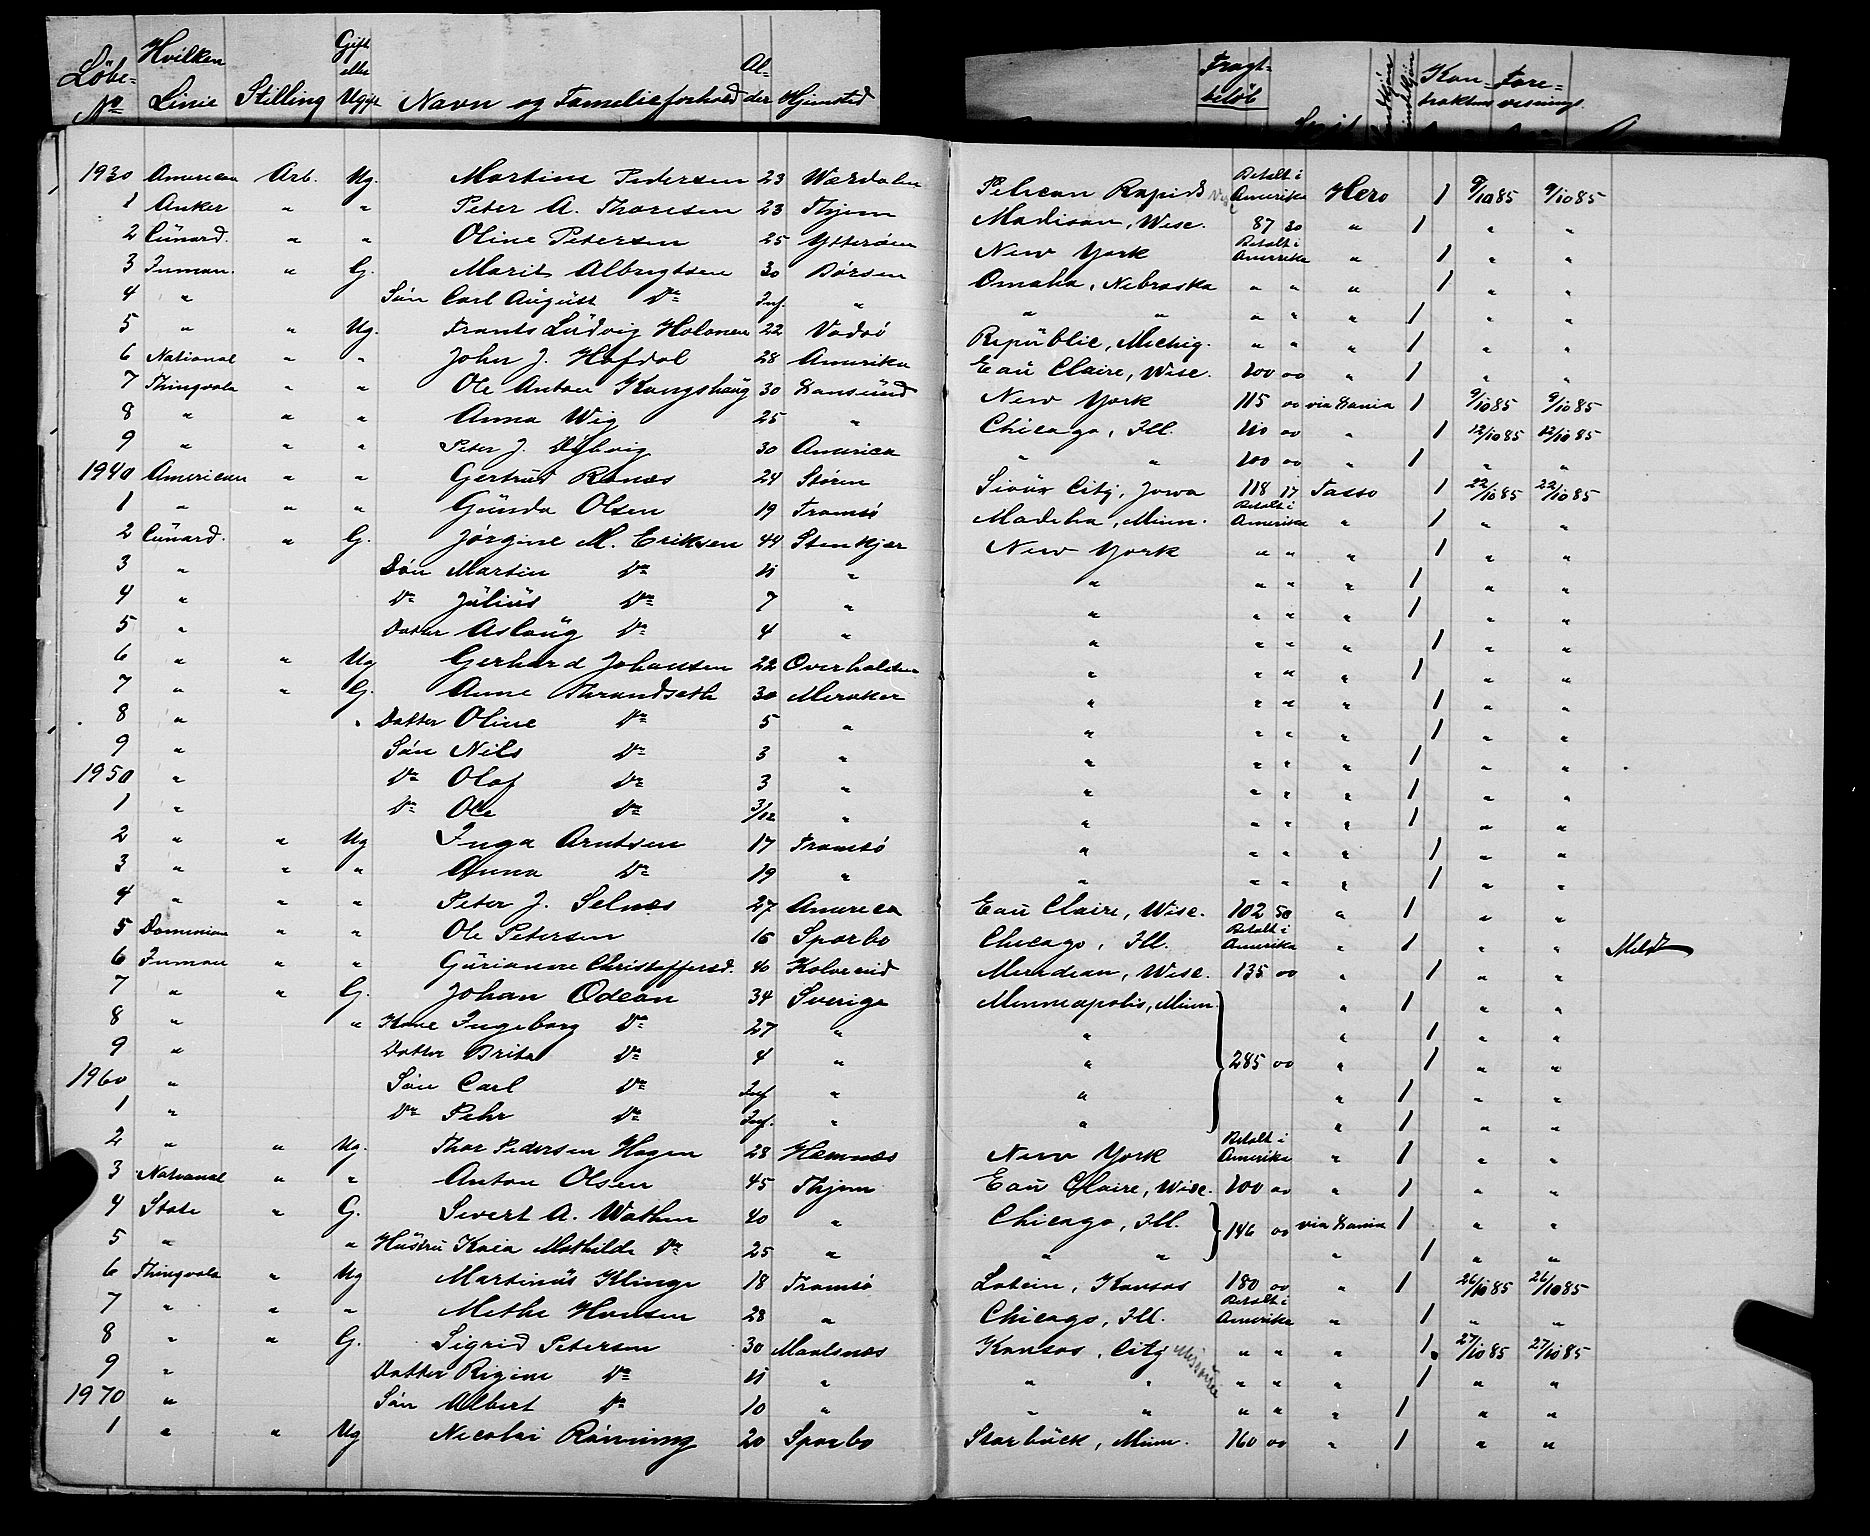 Löbe- No Hvilken Linie Stilling Gift eller Ugift Navn og Familieforhold Al- der Hjemsted Fragt- beløb Kon- traktens Fore- visnings
1930 American Arb. Ug. Martine Pedersen 23 Værdalen Pelican Rapids Betalt i Amerika Hero 1 9/10 85 9/10 85
1 Anker " " Peter A. Thoresen 23 Thjem Madison, Wisc. 87 20 " 1 " "
2 Cunard. " " Oline Petersen 25 Ytterøen New York Betalt i Amerika " 1 " "
3 Inman. " G. Marit Albrigtsen 30 Børsen Omaha, Nebraska " " " 1 " "
4 " Søn Carl August Do Inf. " " " " " " 1 " "
5 " " Ug. Frants Ludvig Holonen 22 Vadsö Republic, Michig. " " " 1 " "
6 National " " John J. Hofdal 28 Amerika Eau Claire, Wisc. 100 00 " 1 " "
7 Thingvala " " Ole Anton Kongshaug 30 New York 115 00 via Dania 1 9/10 85 9/10 85
8 " " " Anna Wig 25 " Chicago, Ill. 110 00 " 1 12/10 85 12/10 85
9 " " " Peter J. Dybvig 30 America " " 100 00 " 1 " "
1940 American " " Gertrud Renæs 24 Støren Sioux City, Jowa 118 17 Tasso 1 22/10 85 22/10 85
1 " " " Gunda Olsen 19 Tromsö Madelia, Minn. Betalt i Amerika " 1 " "
2 Cunard. " G. Jørgine M. Eriksen 44 Stenkjær New York " " " 1 " "
3 " Søn Martin Do 11 " " " " " 1 " "
4 " Do Julius Do 7 " " " " " 1 " "
5 " Datter Aslaug Do 4 " " " " " 1 " "
6 " " Ug Gerhard Johansen 22 Overhalden " " " " 1 " "
7 " " G. Anne Thrandseth 30 Meraker " " " " 1 " "
8 " " Datter Oline Do 5 " " " " " 1 " "
9 " Søn Nils Do 3 " " " " " 1 " "
1950 " Do Olaf Do 3 " " " " " 1 " "
1 " Do Ole Do 3/12 " " " " " 1 " "
2 " " Ug Inga Arntsen 17 Tromsö " " " " 1 " "
3 " " " Anna Do 19 " " " " " 1 " "
4 " " " Peter J. Selnæs 27 America Eau Claire, Wisc. 102 50 " 1 " "
5 Dominion " " Ole Petersen 16 Sparbo Chicago, Ill. Betalt i Amerika " 1 " " Meldt
6 Inman " " Gurianne Christoffersd. 40 Kolvereid Meridean, Wisc. 135 00 " 1 " "
7 " " G. Johan Odean 34 Sverige Minneapolis, Minn. " 1 " "
8 " " Kone Ingeborg Do 27 " " " 1 " "
9 " Datter Brita Do 4 " " 285 00 " 1 " "
1960 " Søn Carl Do Inf " " " 1 " "
1 " Do Pehr Do Inf. " " " 1 " "
2 " " Ug. Thor Pedersen Hagen 28 Hemnæs New York Betalt i Amerika " 1 " "
3 National " " Anton Olsen 45 Thjem Eau Claire, Wisc. 100 00 " 1 " "
4 State " G. Sivert A. Wathen 40 " Chicago, Ill. 146 00 via Dania 1 " "
5 " " Hustru Kaia Mathilde Do 25 " " " " 1 " "
6 Thingvala " Ug Martinus Klinge 18 Tromsö Kansas 180 00 " 1 26/10 85 26/10 85
7 " " " Methe Hansen 28 " Chicago, Ill. Betalt i Amerika " 1 " "
8 " " G. Sigrid Petersen 30 Maalsnæs Kansas, City Missouri " " " 1 27/10 85 27/10 85
9 " Datter Rigine Do 11 " " " " " " 1 " "
1970 " Søn Albert Do 10 " " " " " " 1 " "
1 " " Ug Nicolai Rönning 20 Sparbo Starbuck, Minn. 160 00 " 1 " "